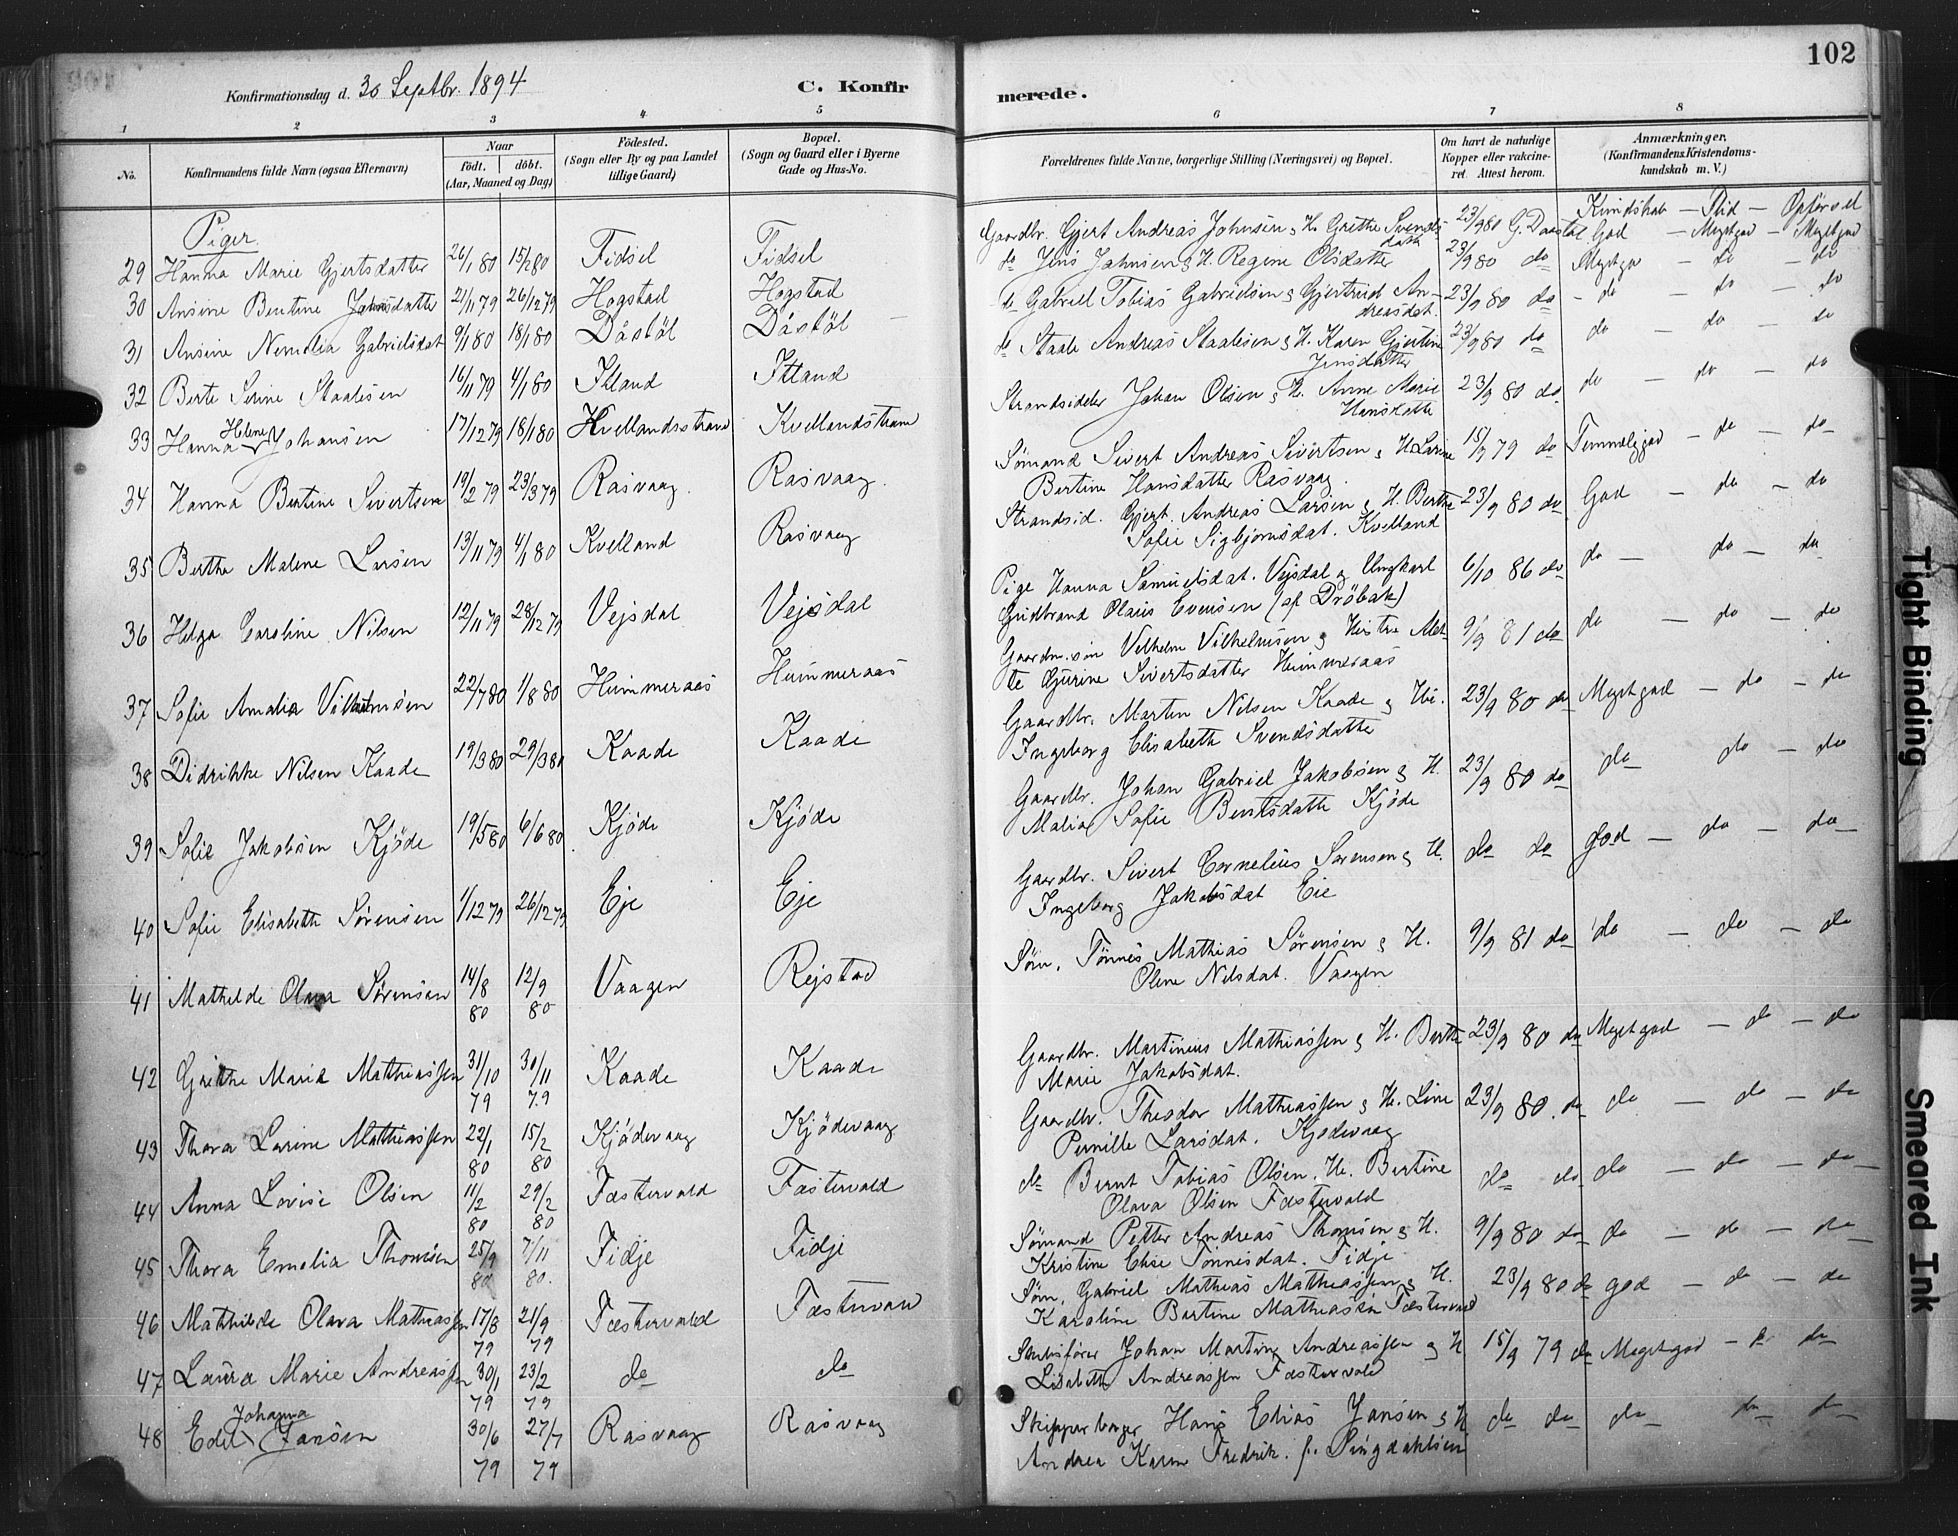 102
Konfirmationsdag d. 30 Septbr. 1894 C. Konfirmerede.
1 2 3 4 5 6 7 8
No. Konfirmandens fulde Navn (ogsaa Efternavn) Naar født. døbt. (Aar, Maaned og Dag) Fødested. (Sogn eller By og paa Landet tillige Gaard) Bopæl. (Sogn og Gaard eller i Byerne Gade og Hus-No. Forældrenes fulde Navne, borgerlige Stilling (Næringsvei) og Bopæl. Om havt de naturlige Kopper eller vakcineret. Attest herom. Anmærkninger. (Konfirmandens Kristendomskundskab m. V.)
Piger. Kundskab — Flid — Opførsel
29 Hanna Marie Gjertsdatter 26/1 80 15/2 80 Fidsel Fidsel Gaardbr. Gjert Andreas Johnsen & H. Grethe Svendsdatt 23/9 80 G. Daastøl God — Megetgod — Megetgod
30 Ansine Bertine Jensdatter 21/11 79 26/12 79 Hogstad Hogstad do Jens Johnsen & H. Regine Olsdatter 23/9 80 do Megetgo — do — do
31 Ansine Nemalia Gabrielsdat 9/1 80 18/1 80 Dåstöl Dåstöl do Gabriel Tobias Gabrielsen & Gjertrud Andreasdat. 23/9 80 do - do — do — do
32 Berte Serine Staalesen 16/11 79 4/1 80 Itland Itland do Staale Andreas Staalesen & H. Karen Gjertine Jensdatter 23/9 80 do do — do — do
33 Hanna Helene Johansen 17/12 79 18/1 80 Kvellandsstrand Kvellandstrand Strandsidder Johan Olsen & H. Anne Marie Hansdatter 23/9 80 do do — do — do
34 Hanna Bertine Sivertsen 19/2 79 23/3 79 Rasvaag Rasvaag. Sømand Sivert Andreas Sivertsen & H. Larine
Bertine Hansdatter Rasvaag. 15/9 79 do Temmeliggod — do — do
35 Berthe Malene Larsen 13/11 79 4/1 80 Kvelland Rasvaag Strandsid. Gjert Andreas Larsen & H. Berthe
Sofie Sigbjørnsdat. Kvelland 23/9 80 do God — do — do
36 Helga Caroline Nilsen 12/11 79 28/12 79 Vejsdal Vejsdal Pige Hanna Samuelsdat. Vejsdal og Ungkarl
Gudbrand Olaus Evensen (af Drøbak) 6/10 86 do do — do — do
37 Sofie Amalia Vilhelmsen 22/7 80 1/8 80 Hummeraas Hummeraas Gaardm. Vilhelm Vilhelmsen & Hustru Mette
Gurine Sivertsdatter Hummeraas 9/9 81 do do — do — do
38 Didrikke Nilsen Kaade 19/3 80 29/3 80 Kaade Kaade Gaardbr. Martin Nilsen Kaade & Hu.
Ingeborg Elisabeth Svendsdatter 23/9 80 do Megetgod — do — do
39 Sofie Jakobsen Kjøde 19/5 80 6/6 80 Kjøde Kjøde Gaardbr. Johan Gabriel Jakobsen & H.
Malia Sofie Berntsdatte Kjøde 23/9 80 do do do — do
40 Sofie Elisabeth Sørensen 1/12 79 26/12 79 Eje Eje Gaardbr. Sivert Cornelius Sørensen & H.
Ingeborg Jakobsdat Eie do do god — do — do
41 Mathilde Olava Sørensen 14/8 80 12/9 80 Vaagen Rejstad Søm. Tønnes Mathias Sørensen & H.
Olene Nilsdat. Vaagen 9/9 81 do do — do — do
42 Grethe Marie Mathiassen 31/10 79 30/11 79 Kaade Kaade Gaardbr. Martinius Mathiassen & H. Berthe
Marie Jakobsdat. 23/9 80 do Megetgod — do — do
43 Thora Larine Mathiassen 22/1 80 15/2 80 Kjødevaag Kjødevaag Gaardbr. Theodor Mathiassen & H. Line
Pernille Larsdat. Kjødevaag 23/9 80 do do — do — do
44 Anna Lovise Olsen 11/2 80 29/2 80 Fæstervold Fæstervold do Bernt Tobias Olsen. H. Bertine
Olava Olsen Fæstervold do do do — do — do
45 Thora Emelia Thomsen 25/9 80 7/11 80. Fidje Fidje Sømand Petter Andreas Thomsen & H.
Kristine Elise Tønnesdat. Fidje 9/9 80 do do — do — do
46 Mathilde Olava Mathiassen 17/8 79 21/9 79 Fæstervold Fæstervold Søm. Gabriel Mathias Mathiassen & H.
Karoline Bertine Mathiassen Fæstervold 23/9 80 do god — do — do
47 Laura Marie Andreassen 30/1 79 23/2 79 do do Skibsfører Johan Martin Andreassen & H
Lisabeth Andreassen Fæstervold 15/9 79 do Megetgod — do do
48 Edel Johanna Jansen 30/6 79 27/7 79 Rasvaag Rasvaag Skipperborger Hans Elias Jansen & H
Andrea Karine Fredrik. f. Singdahlsen do do do do do
Tight Binding
Smeared Ink